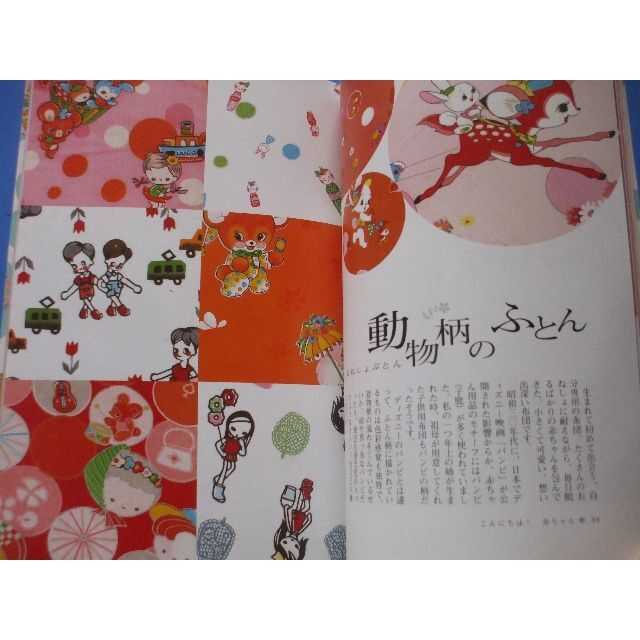 動物柄のふとん
ねしょぶとん
生まれて初めて出会う、自
分専用の布団。たくさんのお
ねしょに耐えながら、毎日眠
るばかりの赤ちゃんを包んで
きた、小さくて可愛い、想い
出深い布団です。
昭和二〇年代に、日本でデ
ィズニー映画「バンビ」が公
開された影響からか、赤ちゃ
ん用品のモチーフにはバンビ
(子鹿)が多く使われていまし
た。私の
姉が生ま
れ
祖母が用意してくれ
た子供用布団もバンビの柄だ
ったそうです。
ディズニーのバンビとは違
って、ふとん柄に描かれてい
るものは
こんにちは! 赤ちゃん 39